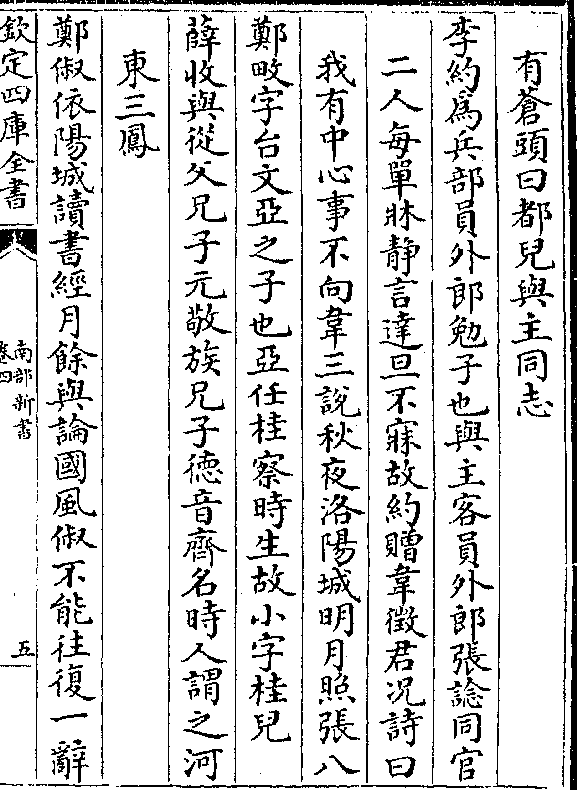 有蒼頭曰都兒與主同志
李約為兵部員外郎勉子也與主客員外郎張諗同官
二人每單牀静言達旦不寐故約贈韋徵君况詩曰
我有中心事不向韋三説秋夜洛陽城明月照張八
鄭畋字台文亞之子也亞任桂察時生故小字桂兒
薛收與從父兄子元敬族兄子德音齊名時人謂之河
東三鳳
鄭俶依陽城讀書經月餘與論國風俶不能往復一辭
欽定四庫全書
南部新書
卷四
五